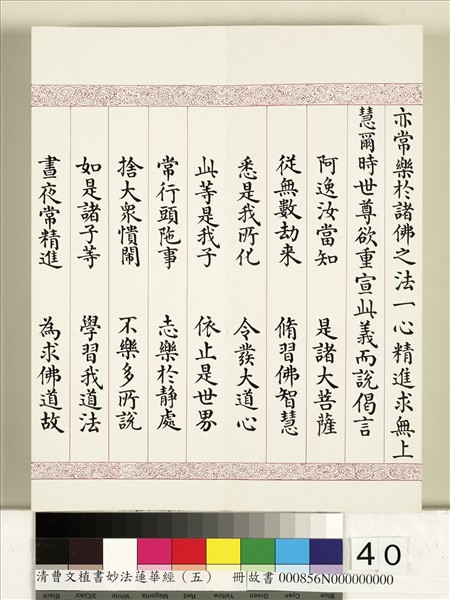 亦常樂於諸佛之法一心精進求無上
慧爾時世尊欲重宣此義而說偈言
阿逸汝當知　是諸大菩薩
從無數劫來　脩習佛智慧
悉是我所化　令發大道心
此等是我子　依止是世界
常行頭陁事　志樂於靜處
捨大衆憒閙　不樂多所說
如是諸子等　學習我道法
晝夜常精進　為求佛道故
40
清曹文植書妙法蓮華經（五）　冊故書 000856N000000000
Black 3/Color White Magenta Red Yellow Green Cyan Blue